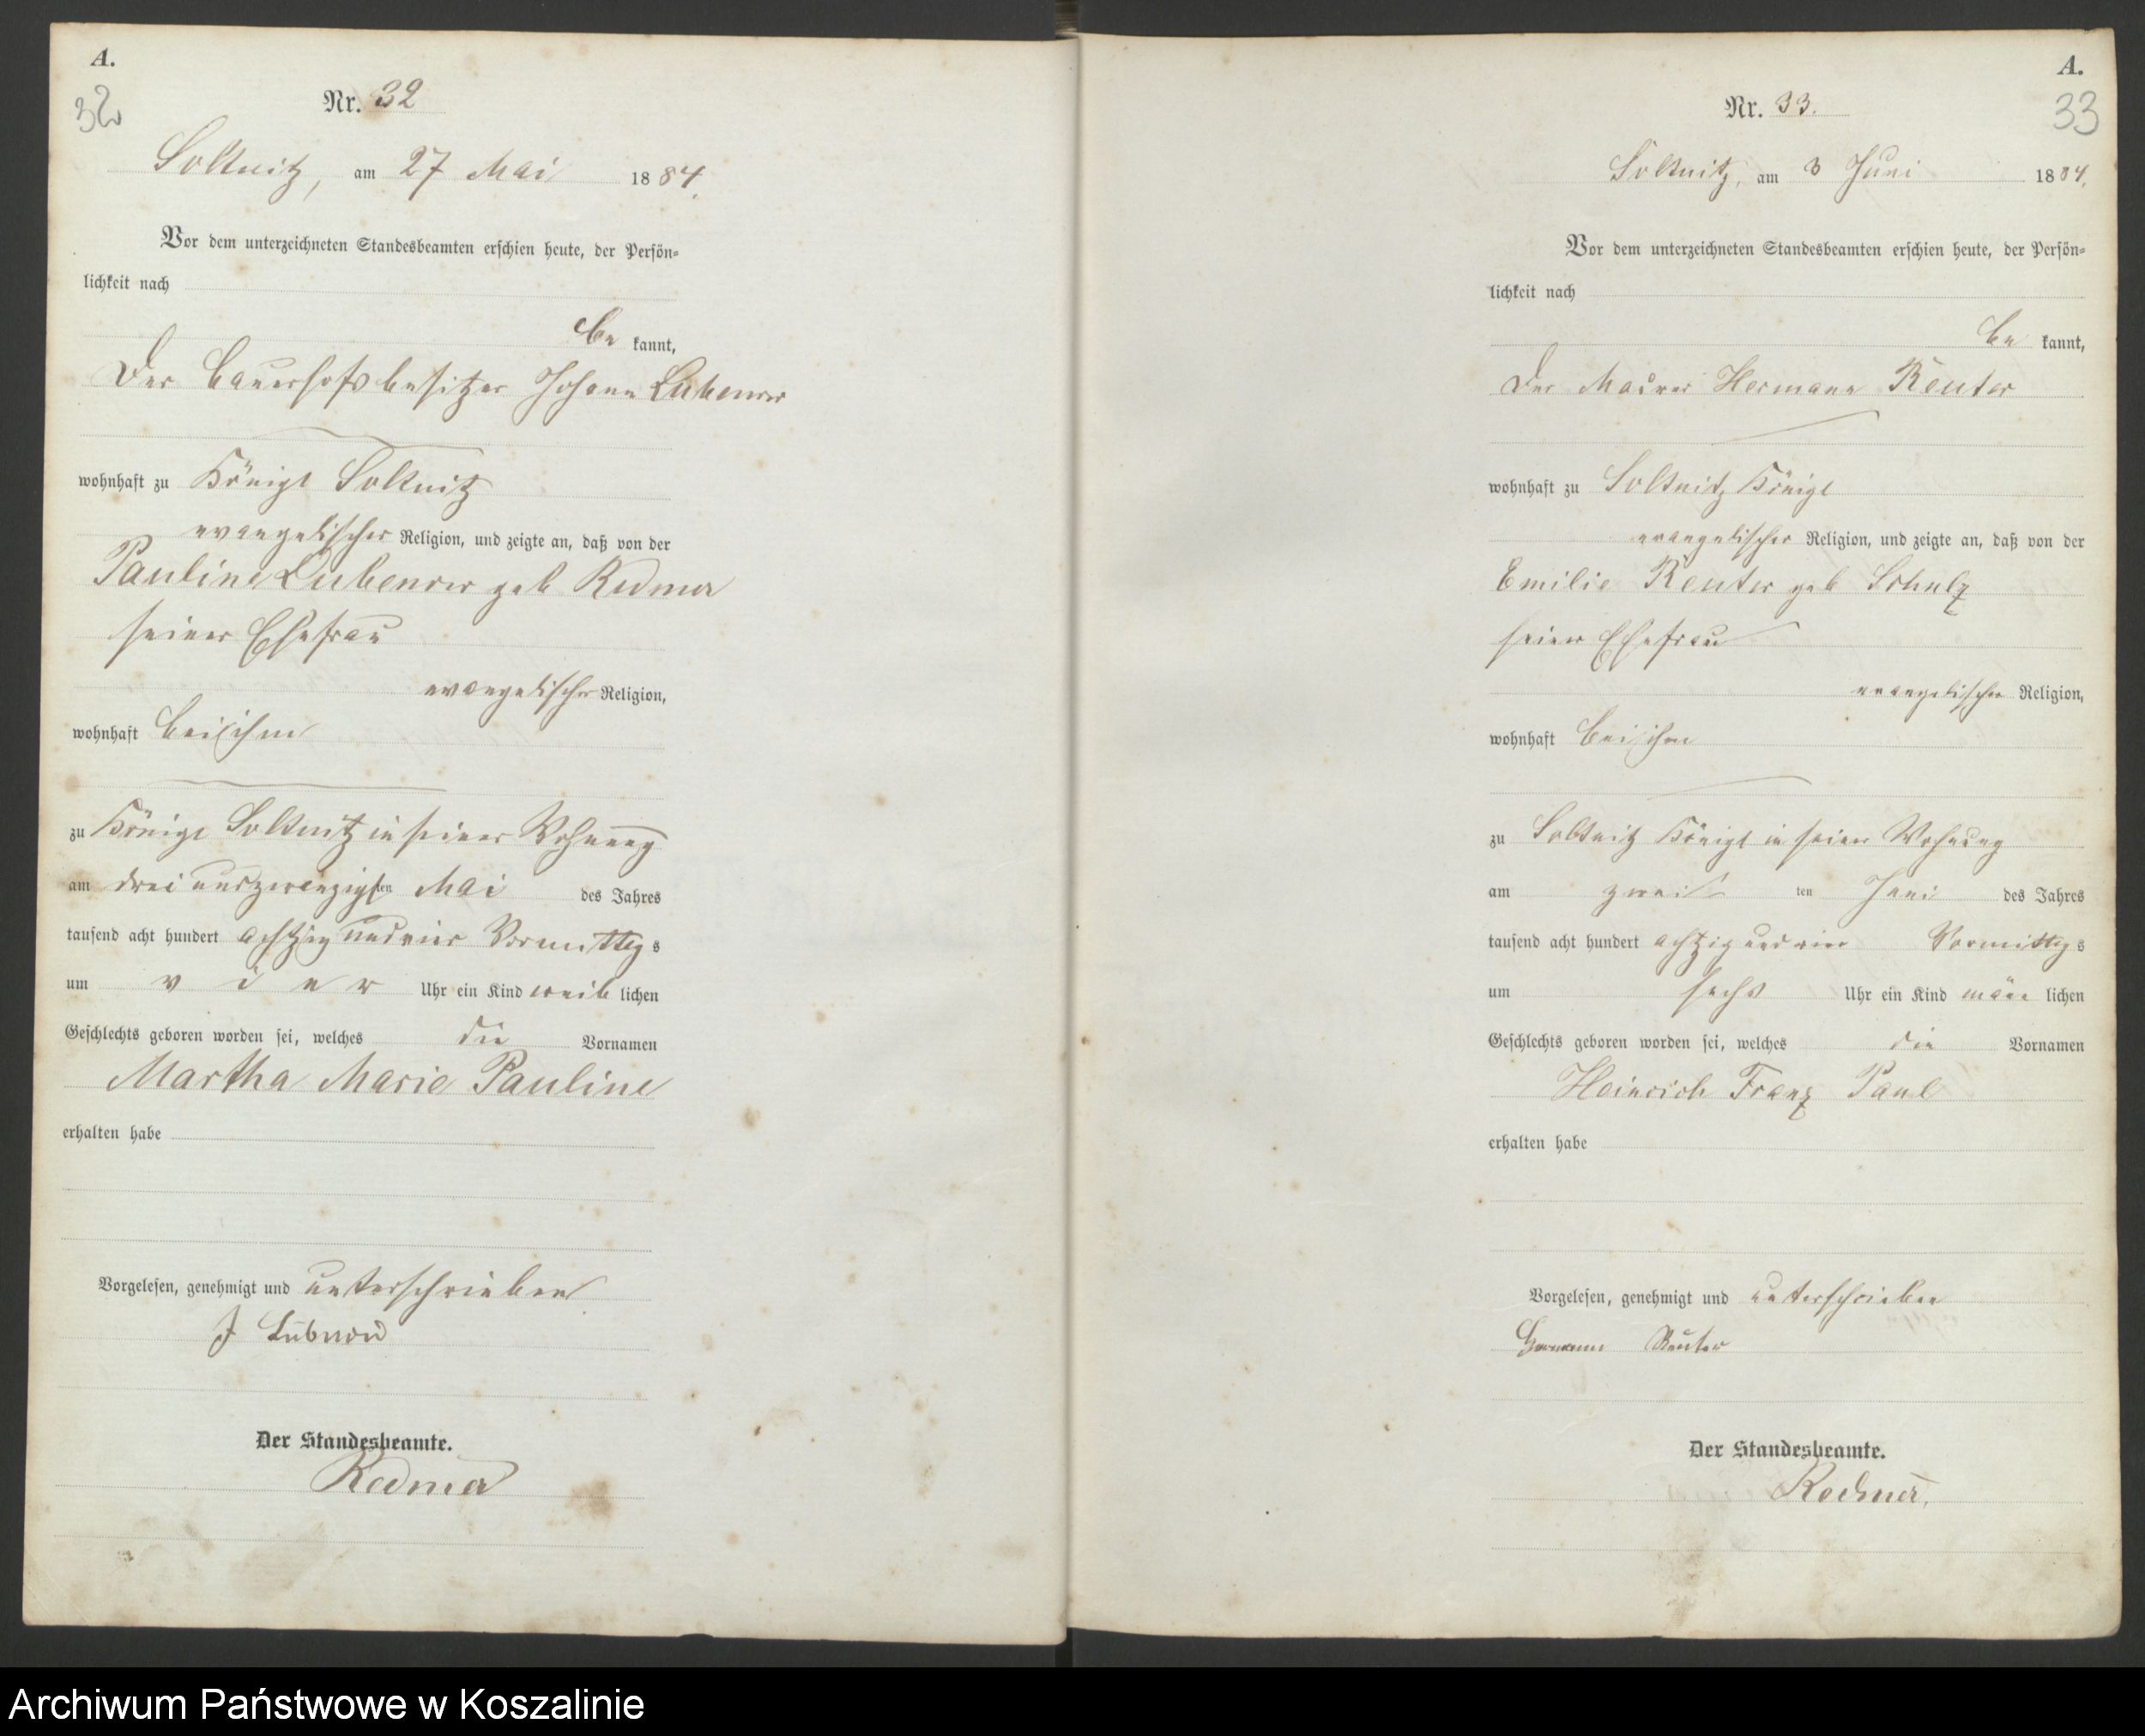 A.
32
Nr. 32
Soltnitz, am 27 Mai 1884.
Vor dem unterzeichneten Standesbeamten erschien heute, der Persön-
lichkeit nach
be kannt,
Der Bauerhofsbesitzer Johann Lübenow
wohnhaft zu Königl Soltnitz
evangelischer Religion, und zeigte an, daß von der
Pauline Lubenow geb Redmer
seiner Ehefrau
evangelischer Religion,
wohnhaft bei ihm
zu Königl Soltnitz in seiner Wohnung
am drei und zwanzigsten Mai des Jahres
tausend acht hundert achtzig und vier Vormittags
um vier Uhr ein Kind weiblichen
Geschlechts geboren worden sei, welches die Vornamen
Martha Marie Pauline
erhalten habe
Vorgelesen, genehmigt und unterschrieben
J Lübnow
Der Standesbeamte.
Redmer
A.
33
Nr. 33.
Soltnitz, am 3 Juni 1884.
Vor dem unterzeichneten Standesbeamten erschien heute, der Persön-
lichkeit nach
be kannt,
Der Maurer Hermann Reuter
wohnhaft zu Soltnitz Königl
evangelischer Religion, und zeigte an, daß von der
Emilie Reuter geb Schulz
seiner Ehefrau
evangelischer Religion,
wohnhaft bei ihm
zu Soltnitz Königl in seiner Wohnung
am zwei ten Juni des Jahres
tausend acht hundert achtzig und vier Vormittags
um sechs Uhr ein Kind männ lichen
Geschlechts geboren worden sei, welches die Vornamen
Heinrich Franz Paul
erhalten habe
Vorgelesen, genehmigt und unterschrieben
Hermann Reuter
Der Standesbeamte.
Redmer.
Archiwum Państwowe w Koszalinie